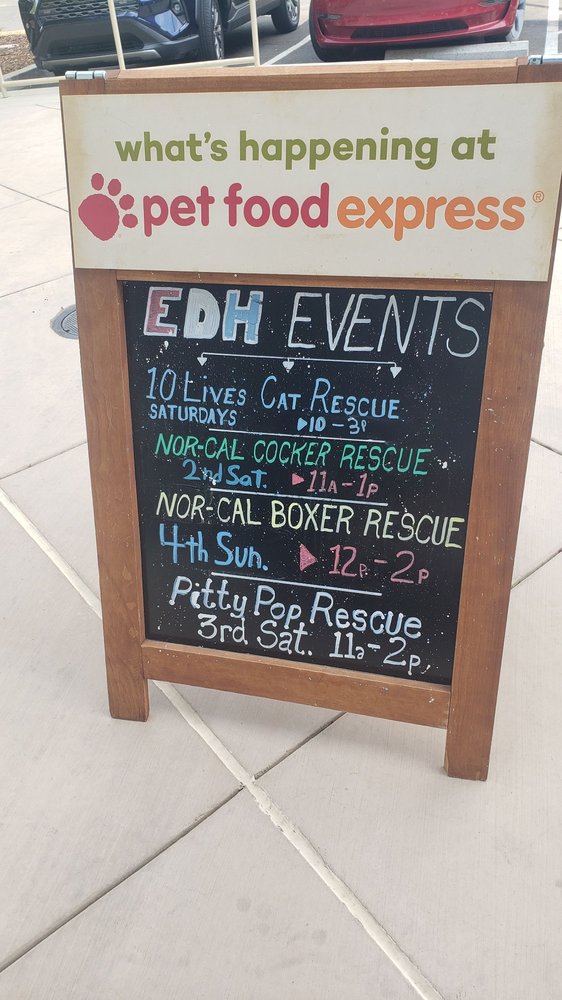 what's happening at
pet food express®
EDH EVENTS
10 LIVES CAT RESCUE
SATURDAYS 10-3P
NOR-CAL COCKER RESCUE
2nd SAT. 11A-1P
NOR-CAL BOXER RESCUE
4th Sun. 12P-2P
Pitty Pop Rescue
3rd Sat. 11a-2p